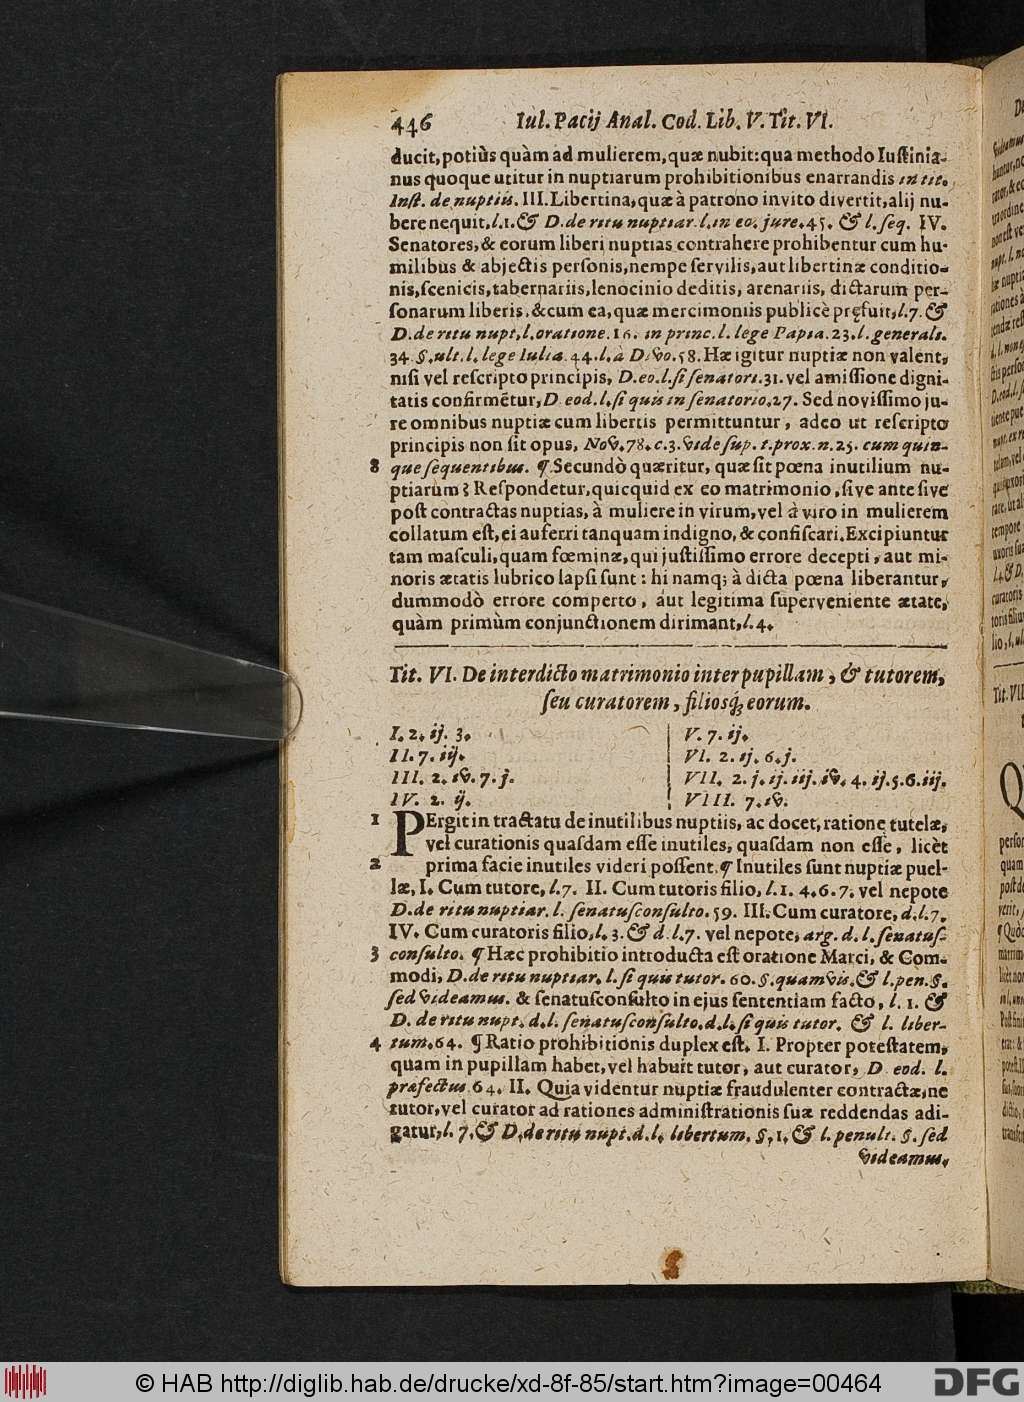 446 Iul. Pacij Anal. Cod. Lib. V. Tit. VI.
ducit, potiùs quàm ad mulierem, quæ nubit: qua methodo Iustinia-
nus quoque utitur in nuptiarum prohibitionibus enarrandis in tit.
Inst. de nuptiis. III. Libertina, quæ à patrono invito divertit, alij nu-
bere nequit, l. 1. & D. de ritu nuptiar. l. in eo. jure. 45. & l. seq. IV.
Senatores, & eorum liberi nuptias contrahere prohibentur cum hu-
milibus & abjectis personis, nempe servilis, aut libertinæ conditio-
nis, scenicis, tabernariis, lenocinio deditis, arenariis, dictarum per-
sonarum liberis, & cum ea, quæ mercimoniis publicè pręfuit, l. 7. &
D. de ritu nupt, l. oratione. 16. in princ. l. lege Papia. 23. l. generali.
34 §. ult. l. lege Iulia. 44. l. à Divo. 58. Hæ igitur nuptiæ non valent,
nisi vel rescripto principis, D. eo. l. si senatori. 31. vel amissione digni-
tatis confirmẽtur, D. eod. l. si quis in senatorio. 27. Sed novissimo ju-
re omnibus nuptiæ cum libertis permittuntur, adeo ut rescripto
principis non sit opus, Nov. 78. c. 3. vide sup. t. prox. n. 25. cum quin-
8 que sequentibus. ¶ Secundò quæritur, quæ sit pœna inutilium nu-
ptiarum? Respondetur, quicquid ex eo matrimonio, sive ante sive
post contractas nuptias, à muliere in virum, vel à viro in mulierem
collatum est, ei auferri tanquam indigno, & confiscari. Excipiuntur
tam masculi, quam fœminæ, qui justissimo errore decepti, aut mi-
noris ætatis lubrico lapsi sunt: hi namq; à dicta pœna liberantur,
dummodò errore comperto, aut legitima superveniente ætate,
quàm primùm conjunctionem dirimant, l. 4.
Tit. VI. De interdicto matrimonio inter pupillam, & tutorem,
seu curatorem, filiosq́; eorum.
I. 2. ij. 3.
II. 7. iij.
III. 2. iv. 7. j.
IV. 2. ij.
V. 7. ij.
VI. 2. ij. 6. j.
VII. 2. j. ij. iij. iv. 4. ij. 5. 6. iij.
VIII. 7. iv.
1 PErgit in tractatu de inutilibus nuptiis, ac docet, ratione tutelæ,
vel curationis quasdam esse inutiles, quasdam non esse, licèt
2 prima facie inutiles videri possent. ¶ Inutiles sunt nuptiæ puel-
læ, I. Cum tutore, l. 7. II. Cum tutoris filio, l. 1. 4. 6. 7. vel nepote
D. de ritu nuptiar. l. senatusconsulto. 59. III. Cum curatore, d. l. 7.
IV. Cum curatoris filio, l. 3. & d. l. 7. vel nepote, arg. d. l. senatus-
3 consulto. ¶ Hæc prohibitio introducta est oratione Marci, & Com-
modi, D. de ritu nuptiar. l. si quis tutor. 60. §. quamvis. & l. pen. §.
sed videamus. & senatusconsulto in ejus sententiam facto, l. 1. &
D. de ritu nupt. d. l. senatusconsulto. d. l. si quis tutor. & l. liber-
4 tum. 64. ¶ Ratio prohibitionis duplex est. I. Propter potestatem,
quam in pupillam habet, vel habuit tutor, aut curator, D. eod. l.
præfectus 64. II. Quia videntur nuptiæ fraudulenter contractæ, ne
tutor, vel curator ad rationes administrationis suæ reddendas adi-
gatur, l. 7. & D. de ritu nupt. d. l. libertum. §. 1. & l. penult. §. sed
videamus,
© HAB http://diglib.hab.de/drucke/xd-8f-85/start.htm?image=00464
DFG